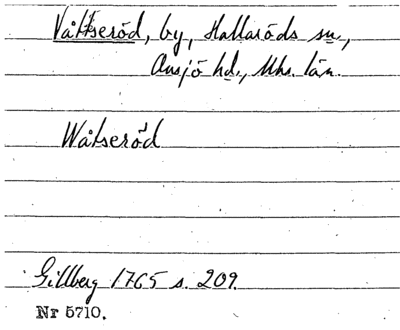 Våttseröd, by, Hallaröds sn,
Onsjö hd., Mhs. län.
Wåtseröd
Gillberg 1765 s. 209.
Nr 5710.